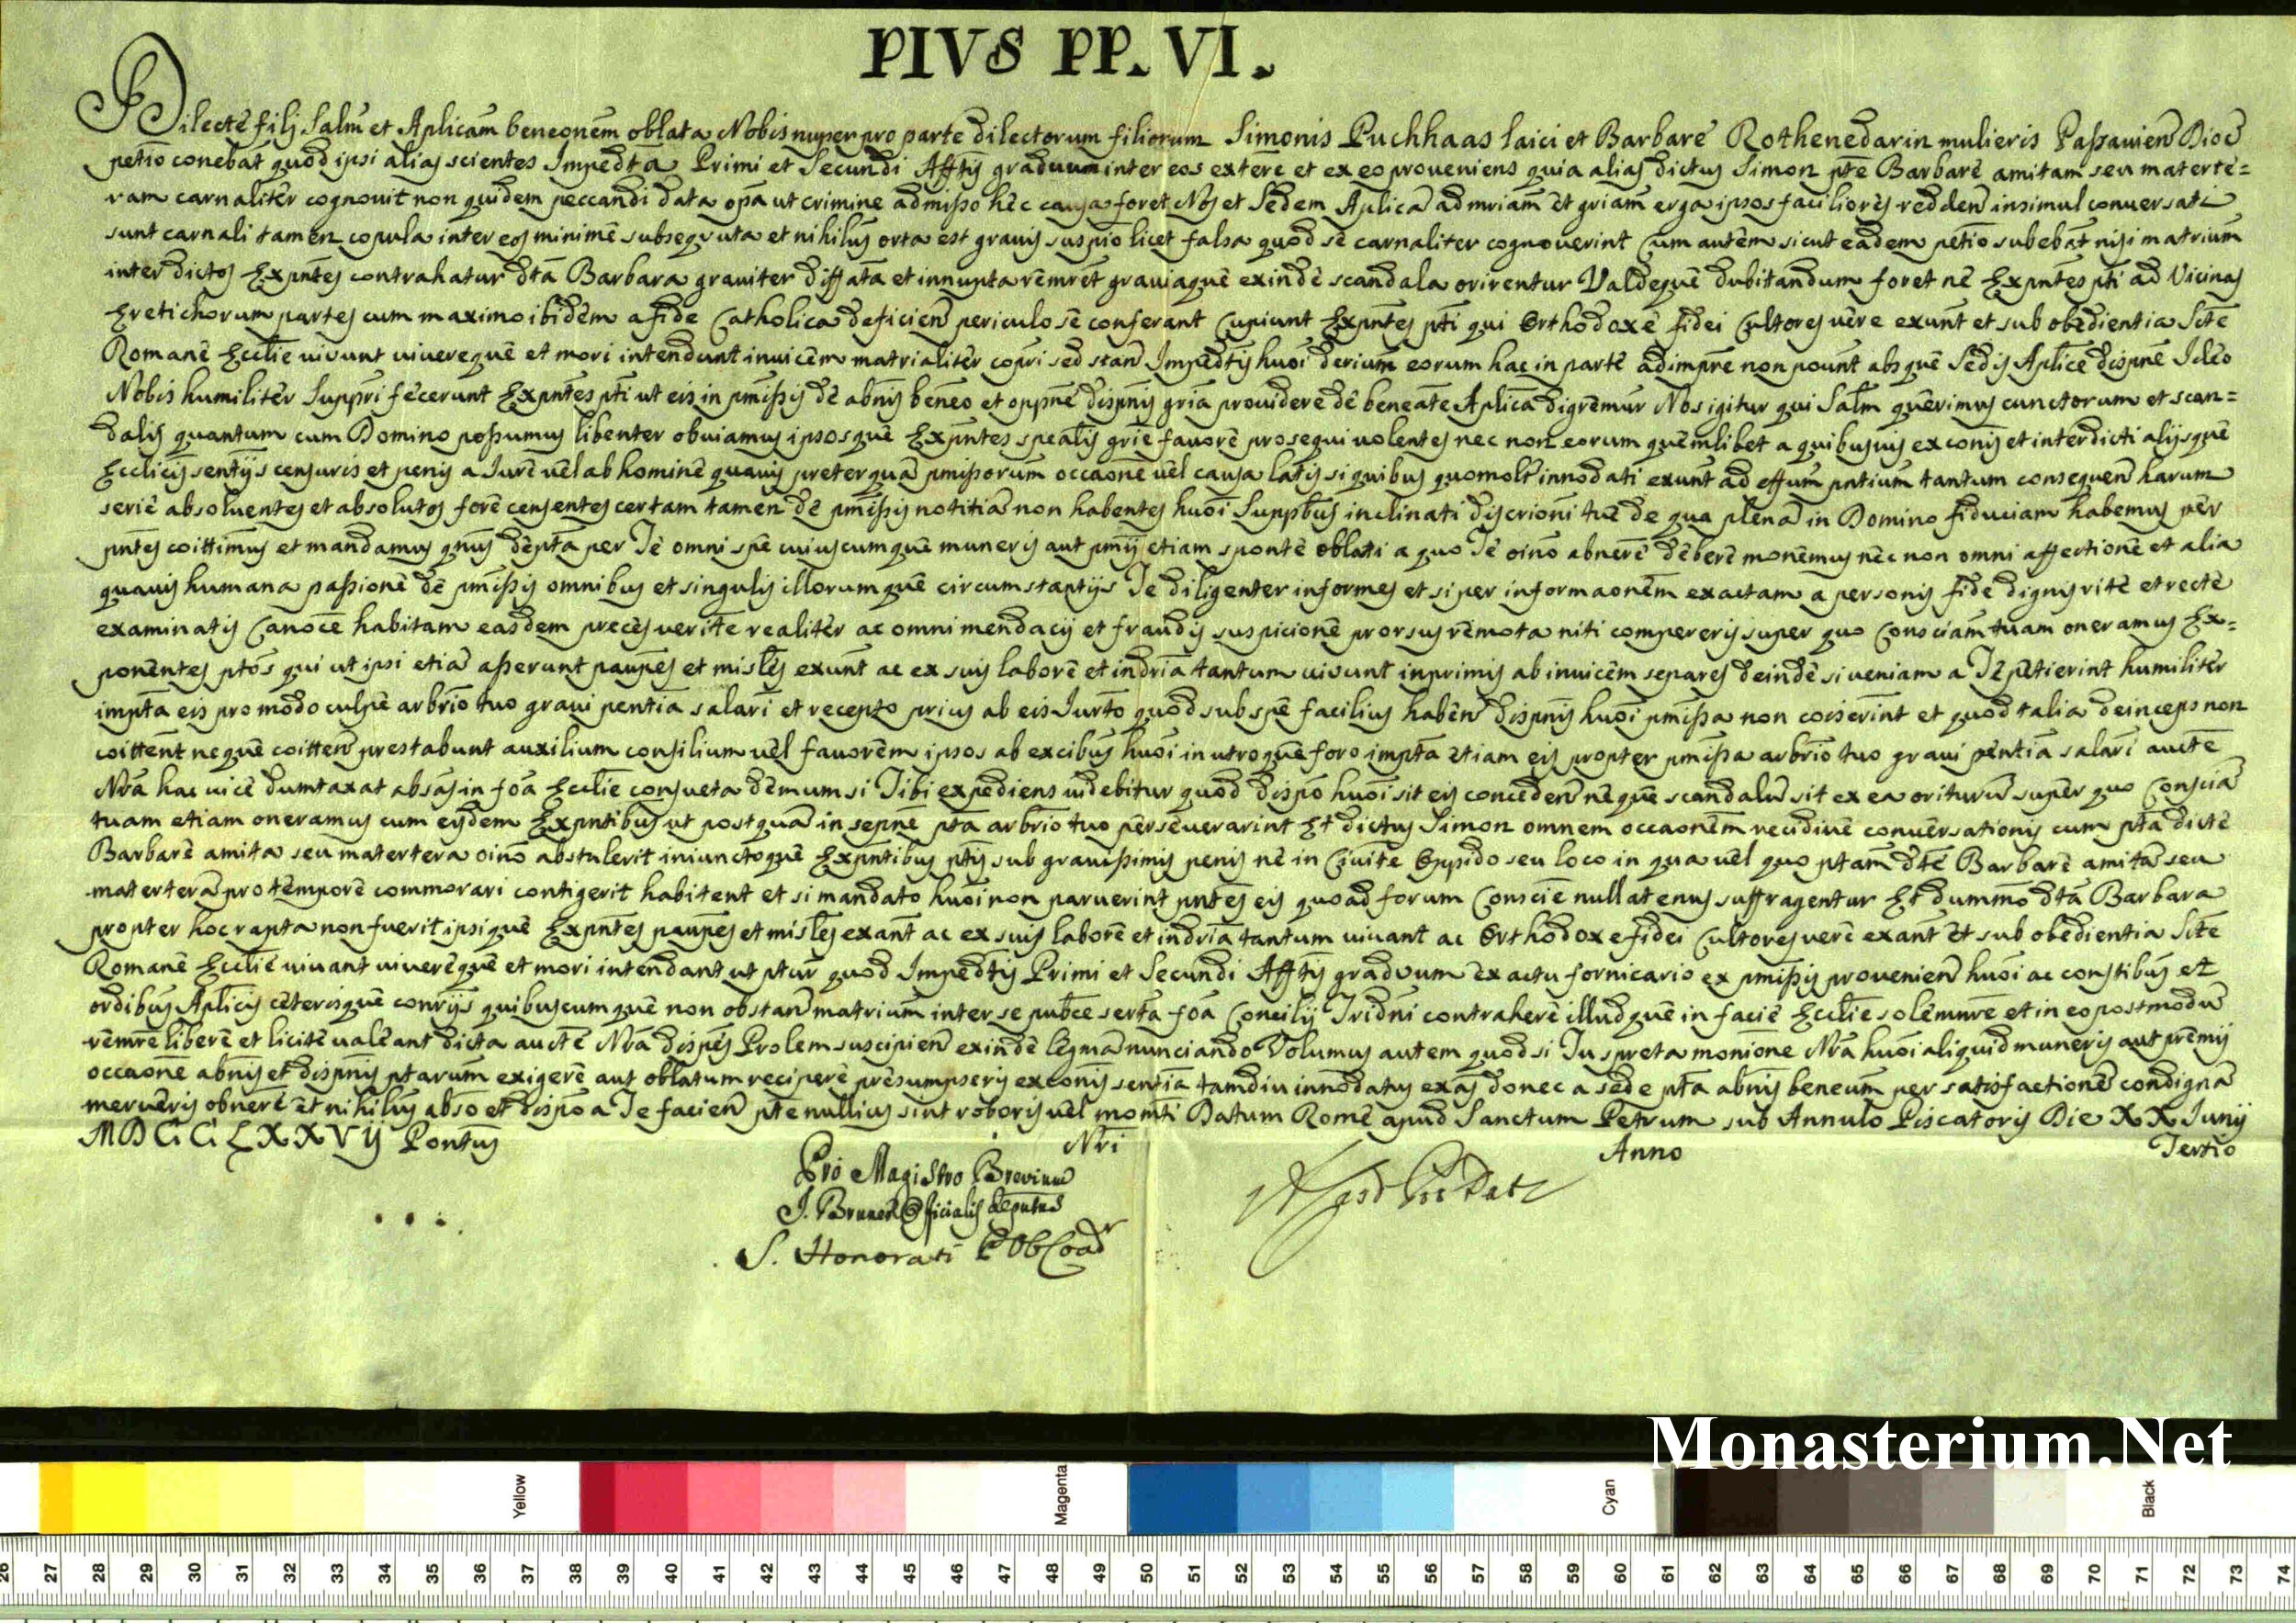 PIVS PP. VI.
Dilectè filj Salm̃ et Aplicam̃ beneonem̃ oblata Nobis nuper pro parte dilectorum filiorum Simonis Puchhaas laici et Barbarè Rothenedarin mulieris Passavien Dioc̃
petio conebat quod ipsi alias scientes Impedta Primi et Secundi Afftỹ graduum inter eos exterè et ex eo proveniens quia alias dictus Simon ptè Barbarè amitam seu materte=
ram carnaliter cognovit non quidem peccandi data opa ut crimine admisso hec causas foret Nos et Sedem Aplica ad mriam et griam erga ipsos faciliores redden insimul conversati
sunt carnali tamen copula inter eos minimè subsequuta et nihilus orta est gravis suspio licet falsa quod sè carnaliter cognoverint Cum autem sicut eadem petio subebat nisi matrium
inter dictos Expntes contrahatur dta Barbara graviter diffata et innupta remret graviaquè exindè scandala orirentur Valdequè dubitandum foret nè Expntes pti ad Vicinas
Hretichorum partes cum maximo ibidem a fide Catholica deficien periculo sè conferant Cupiunt Expntes pti qui Orthodoxè fidei Cultores verè exunt et sub obedientia Stè
Romanè Eccliè vivunt viverequè et mori intendunt invicem matrialiter copri sed stan Impedty huoi derium eorum hac in partè adimpre non pount absquè Sedis Aplicè dispnè Ideo
Nobis humiliter Suppri fecerunt Expntes pti ut eis in pmissis dè abnis beneo et oppnè dispnis gria providerè dè beneatè Aplica digremur Nos igitur qui Salm querimus cunctorum et scan=
dalis quantum cum Domino possumus libenter obviamus ipsosquè Expntes spealis griè favorè prosequi volentes nec non eorum quemlibet a quibusvis exconis et interdicti alijsquè
Ecclicis sentijs censuris et penis a Jurè vel ab hominè quavis preterqua pmissorum occaonè vel causa latis si quibus quomolt innodati exunt ad effum pntium tantum consequen harum
seriè absolventes et absolutos forè censentes certam tamen dè pmissis notitia non habentes huoi Suppbus inclinati discrioni tuè de qua plena in Domino fiduciam habemus per
pntes coittimus et mandamus qnus depta per Tè omni spè cuiuscumquè muneris aut pmij etiam spontè oblati a quo Tè oino abnerè deberè monemus nec non omni affectionè et alia
quavis humana passionè dè pmissis omnibus et singulis illorumquè circumstantijs Te diligenter informes et si per informaonem exactam a personis fide dignis ritè et rectè
examinatis Canocè habitam easdem preces veritè realiter ac omni mendacij et fraudis suspicionè prorsus remota niti compereris super quo Consciam tuam oneramus Ex=
ponentes ptos qui ut ipsi etia asserunt paupes et misles exunt ac ex suis laborè et indria tantum vivunt inprimis ab invicem separes deindè si veniam a Te petierint humiliter
impta eis pro modo culpè arbrio tuo gravi pentia salari et recepto prius ab eis Jurto quod sub spè facilius haben dispnis huoi pmissa non coiserint et quod talia deinceps non
coittent nequè coitten prestabunt auxilium consilium vel favorem ipsos ab excibus huoi in utroquè foro impta etiam eis propter pmissa arbrio tuo gravi pentia salari auctè
Nra hac vicè dumtaxat absas in foa Eccliè consueta demum si Tibi expediens videbitur quod dispo huoi sit eis conceden nequè scandalu sit ex ea oriturum super quo Conscia
tuam etiam oneramus cum eisdem Expntibus ut postqua in sepnè pta arbrio tuo perseverarint Et dictus Simon omnem occaonem recidivè conversationis cum pta dictè
Barbarè amita seu matertera oino abstulerit iniunctoquè Expntibus ptis sub gravissimis penis nè in Civitè Oppido seu loco in qua vel quo ptam dtè Barbarè amita seu
matertera pro temporè commorari contigerit habitent et si mandato huoi non paruerint pntes eis quoad forum Consciè nullatenus suffragentur Et dummo dta Barbara
propter hoc rapta non fuerit ipsiquè Expntes paupes et misles exant ac ex suis laborè et indria tantum vivant ac Orthodoxe fidei Cultores verè exant et sub obedientia Stè
Romanè Eccliè vivant viverequè et mori intendant ut ptur quod Impedtis Primi et Secundi Afftis graduum ex actu fornicario ex pmissis provenien huoi ac constibus et
ordibus Aplicis ceterisquè conrijs quibuscumquè non obstan matrium inter se pubcè serta foa Concilij Tridni contraherè illudquè in faciè Eccliè solemnrè et in eo postmodu
remrè liberè et licitè valeant dicta auctè Nra dispes Prolem suscipien exindè legma nunciando Volumus autem quod si Tu spreta monionè Nra huoi aliquid muneris aut premij
occaonè abnis et dispnis ptarum exigerè aut oblatum reciperè presumpseris exconis sentia tamdiu innodatus exas donec a sede pta abnis beneum per satisfactionè condigna
merueris obnerè et nihilus abso et dispo a Te facien ptè nullius sint roboris vel momti Datum Romè apud Sanctum Petrum sub Annulo Piscatoris Die XX Junij
MDCCLXXVIJ Pontus Nri Anno Tertio
Pro Magistro Brevium
J. Bruner Officialis deputus
S. Honorati